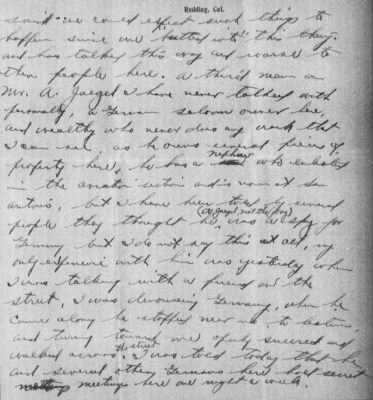 Redding, Cal.
said "we could expect such things to
happen since we "butted into" this thing
and has talked this way and worse to
other people here. A third man a
Mr. A. Jaegel I have never talked with
personally, a German saloon owner here,
and wealthy who never does any work that
I can see, as he owns several pieces of
property here, he has a nephew who enlisted
in the aviation section and is now at San
Antonio, but I have been told by several
people they thought he (A Jaegel not the boy) was a spy for
Germany but I do not say this at all, my
only experience with him was yesterday when
I was talking with a friend on the
street, I was denouncing Germany, when he
came along he stopped near us, to listen
and turning toward me openly sneered and
walked across the street. I was told today that he
and several other Germans here hold secret
meetings here one night a week.